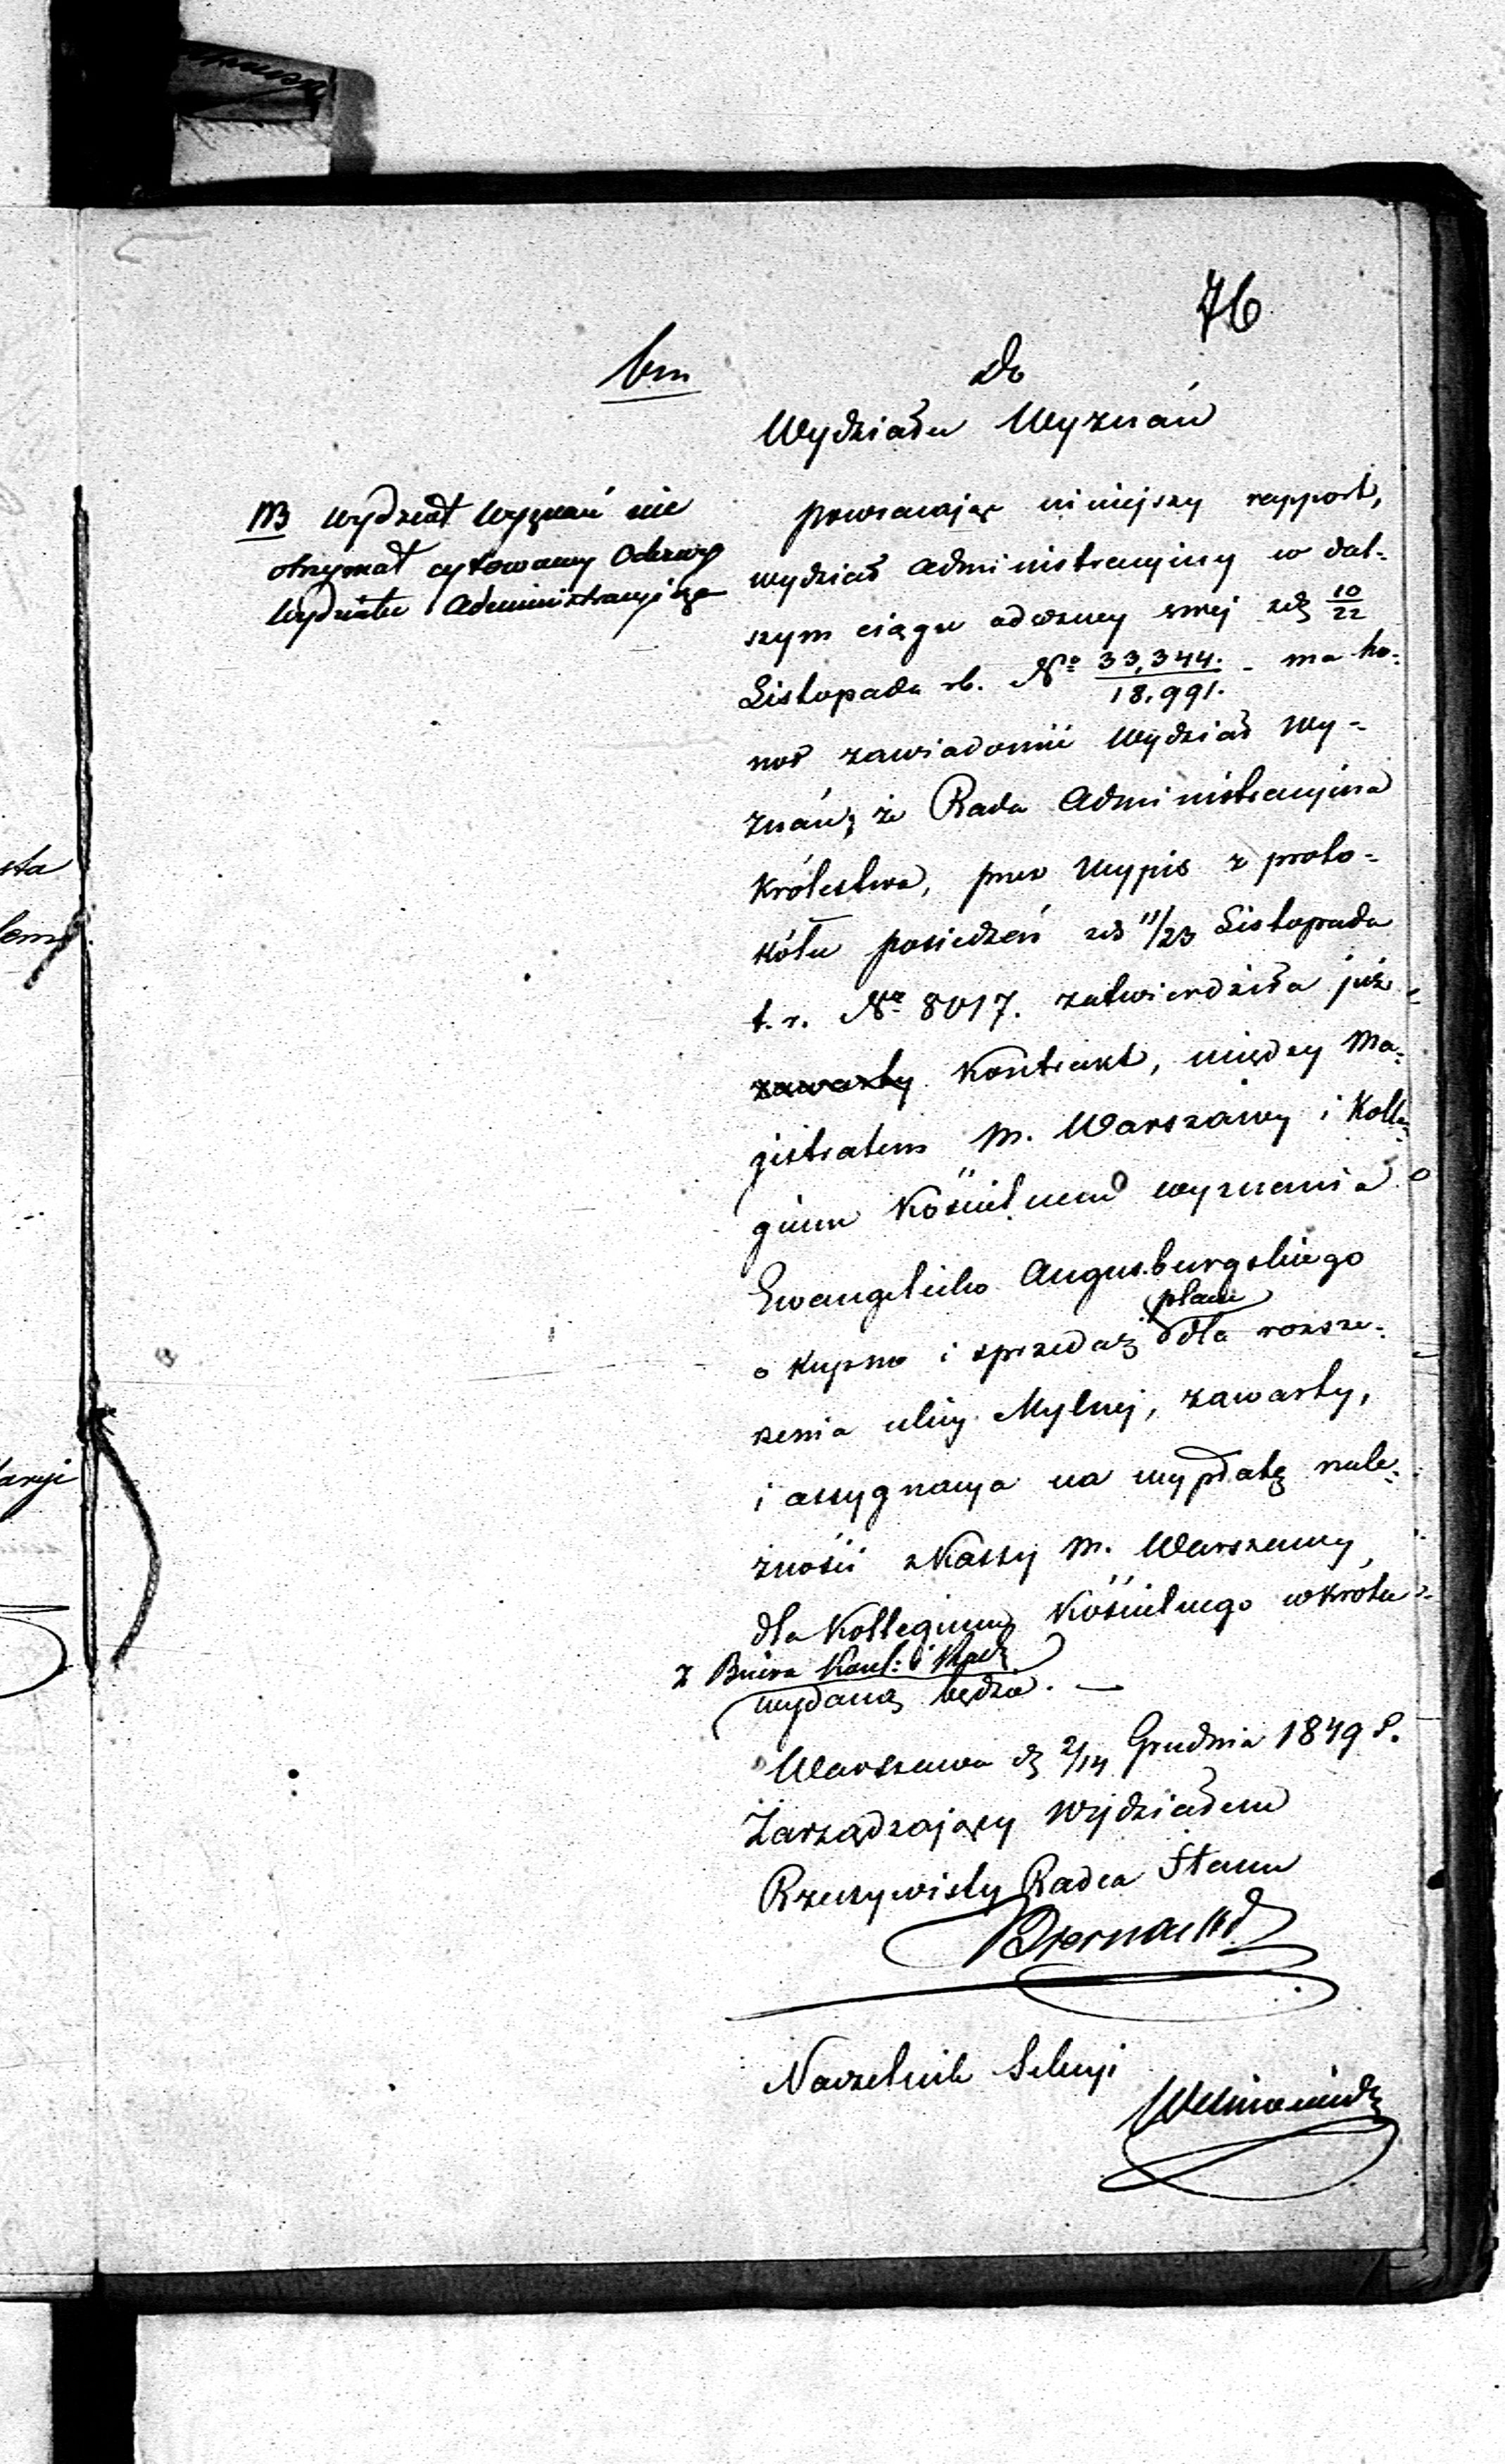 76
bm
Do
Wydziału Wyznań
NB Wydział Wyznań nie
otrzymał cytowanej Odezwy
Wydziału Administracyjnego
powracając niniejszy rapport,
wydział Administracyjny w dal-
szym ciągu odezwy swej zd 10/22
Listopada rb. No 33,344./18,991. – ma ho-
nor zawiadomić Wydział Wy-
znań, że Rada Administracyjna
Królestwa, przez Wypis z proto-
kółu posiedzeń zd 11/23 Listopada
t. r. No 8017. zatwierdziła już
zawarty kontrakt, między Ma-
gistratem m. Warszawy i Kolle-
gium Kościelnem wyznania
Ewangelicko Augusburgskiego
o kupno i sprzedaż placu dla rozsze-
rzenia ulicy Mylnej, zawarty,
i assygnacya na wypłatę nale-
żności z Kassy m. Warszawy,
dla Kollegium Kościelnego wkrótce
z Biura Kont: i Rach
wydaną będzie. —
Warszawa d 2/14 Grudnia 1849 r.
Zarządzający Wydziałem
Rzeczywisty Radca Stanu
Biernacki
Naczelnik Sekcyi